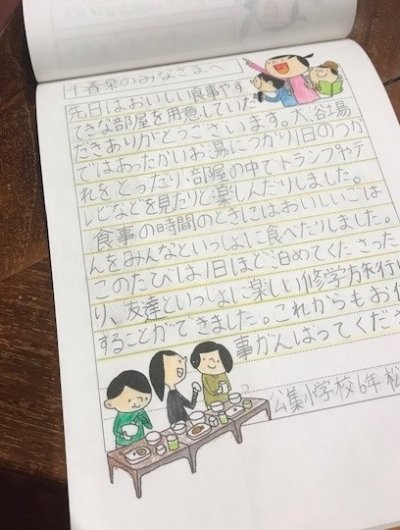 千春泉のみなさまへ
先日はおいしい食事やす
てきな部屋を用意していた
だきありがとうございます。大浴場
ではあったかいお湯につかり1日のつか
れをとったり、部屋の中でトランプやテ
レビなどを見たりと楽しんだりしました。
食事の時間のときにはおいしいごは
んをみんなといっしょに食べたりしました。
このたびは1日ほど泊めてくださった
り、友達といっしょに楽しい修学旅行に
することができました。これからもお仕
事がんばってくださ
公集小学校6年 松